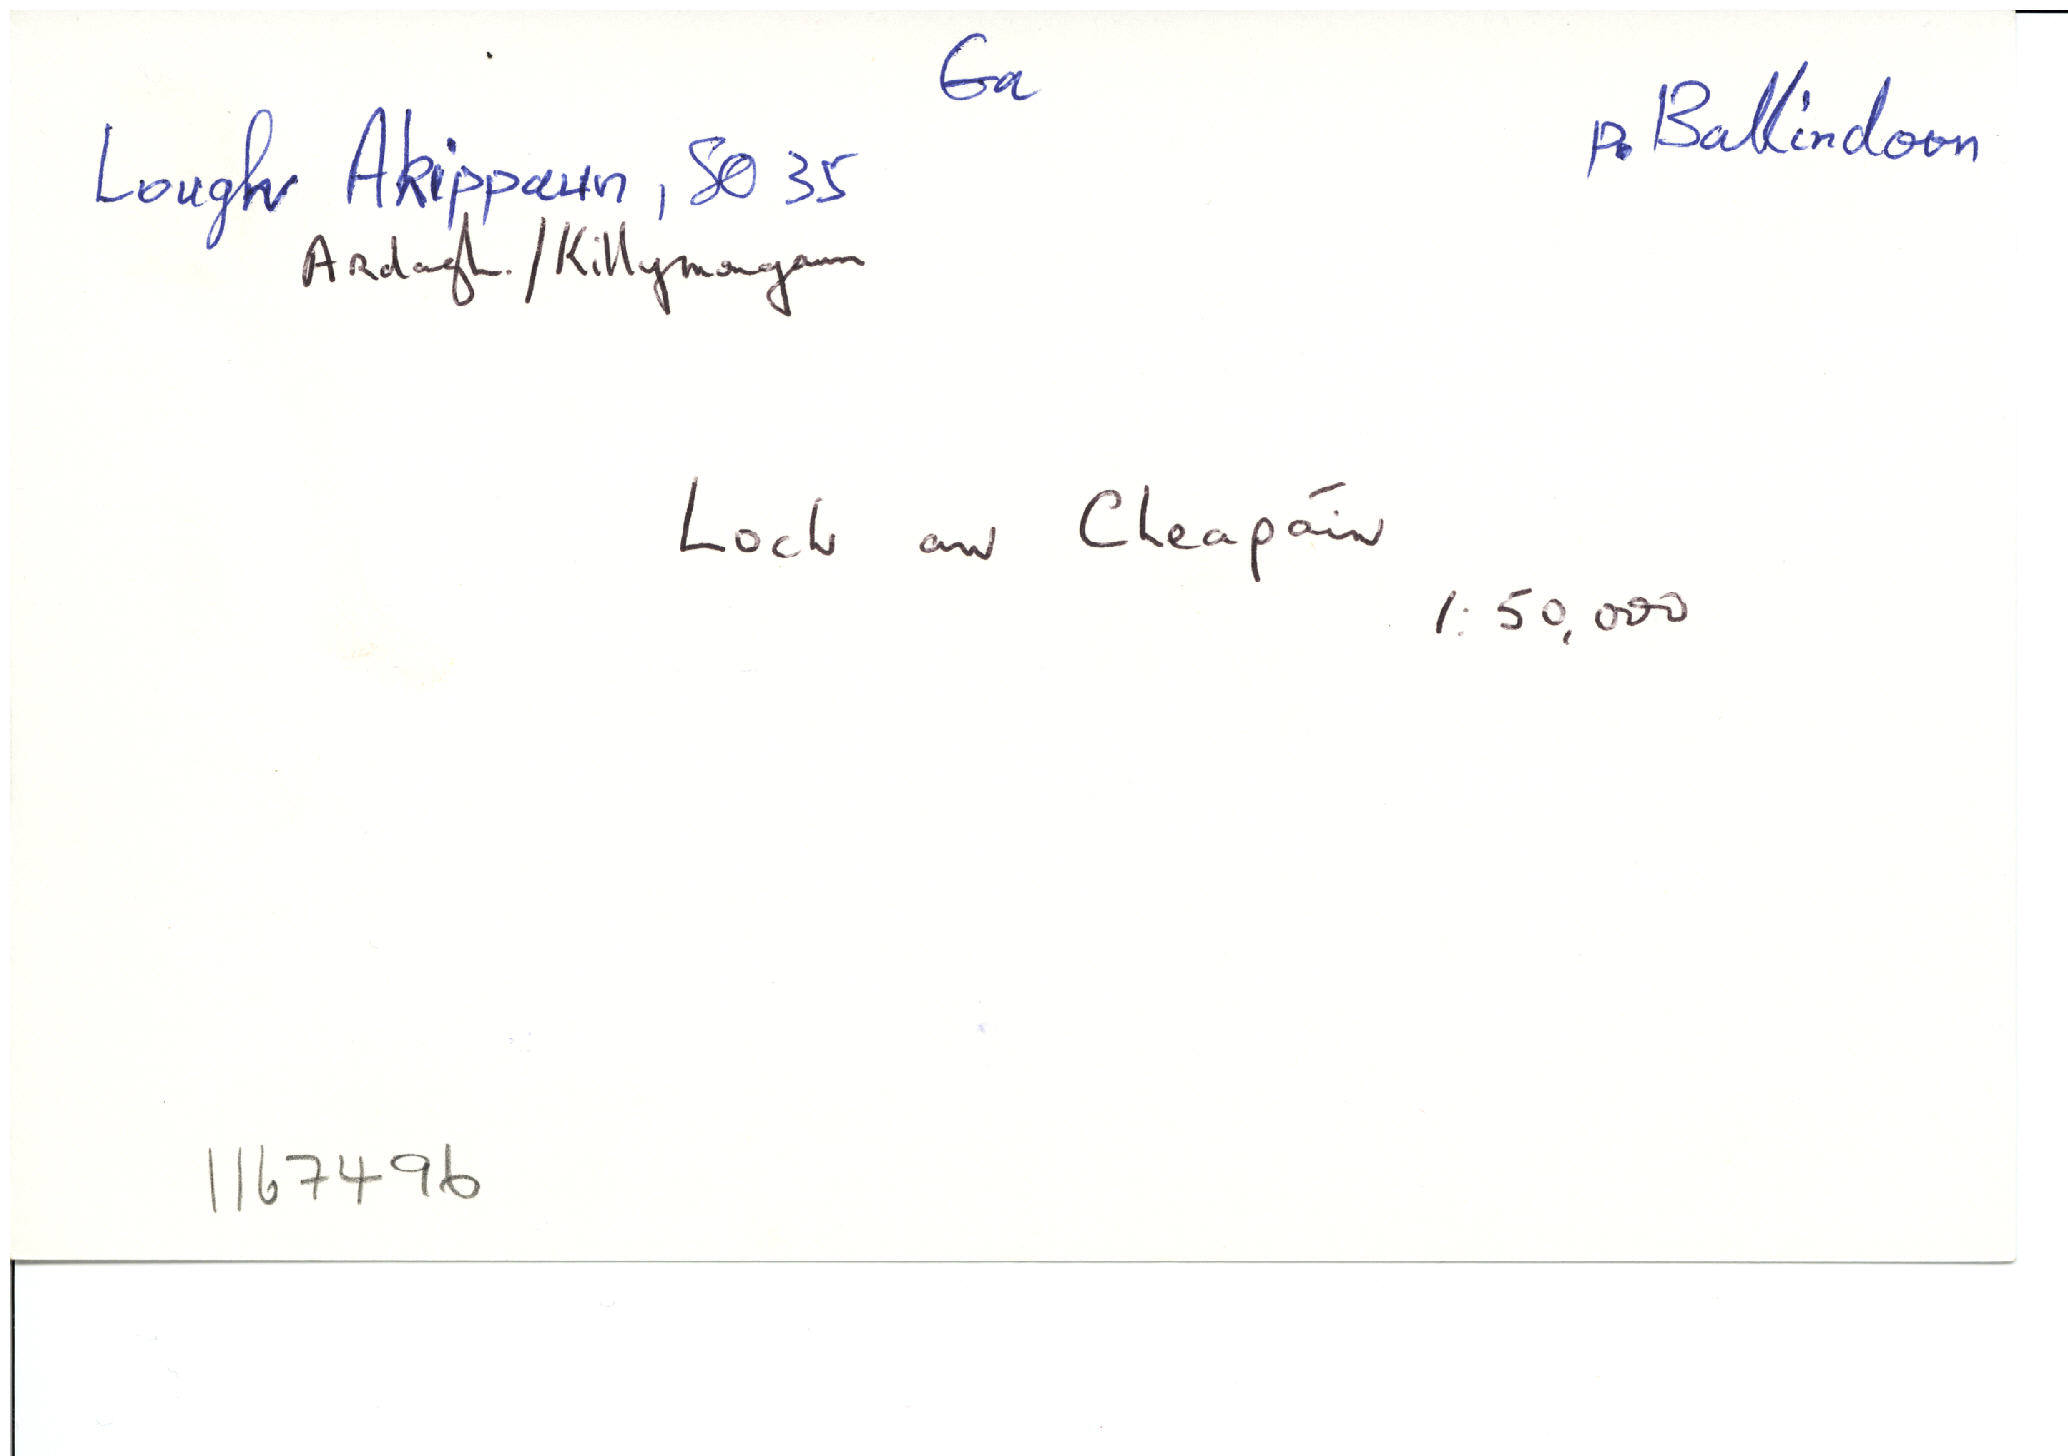 Ga
p. Ballindoon
Lough Akippaun, SO 35
Ardagh./Killymongaun
Loch an Cheapáin
1:50,000
1167496